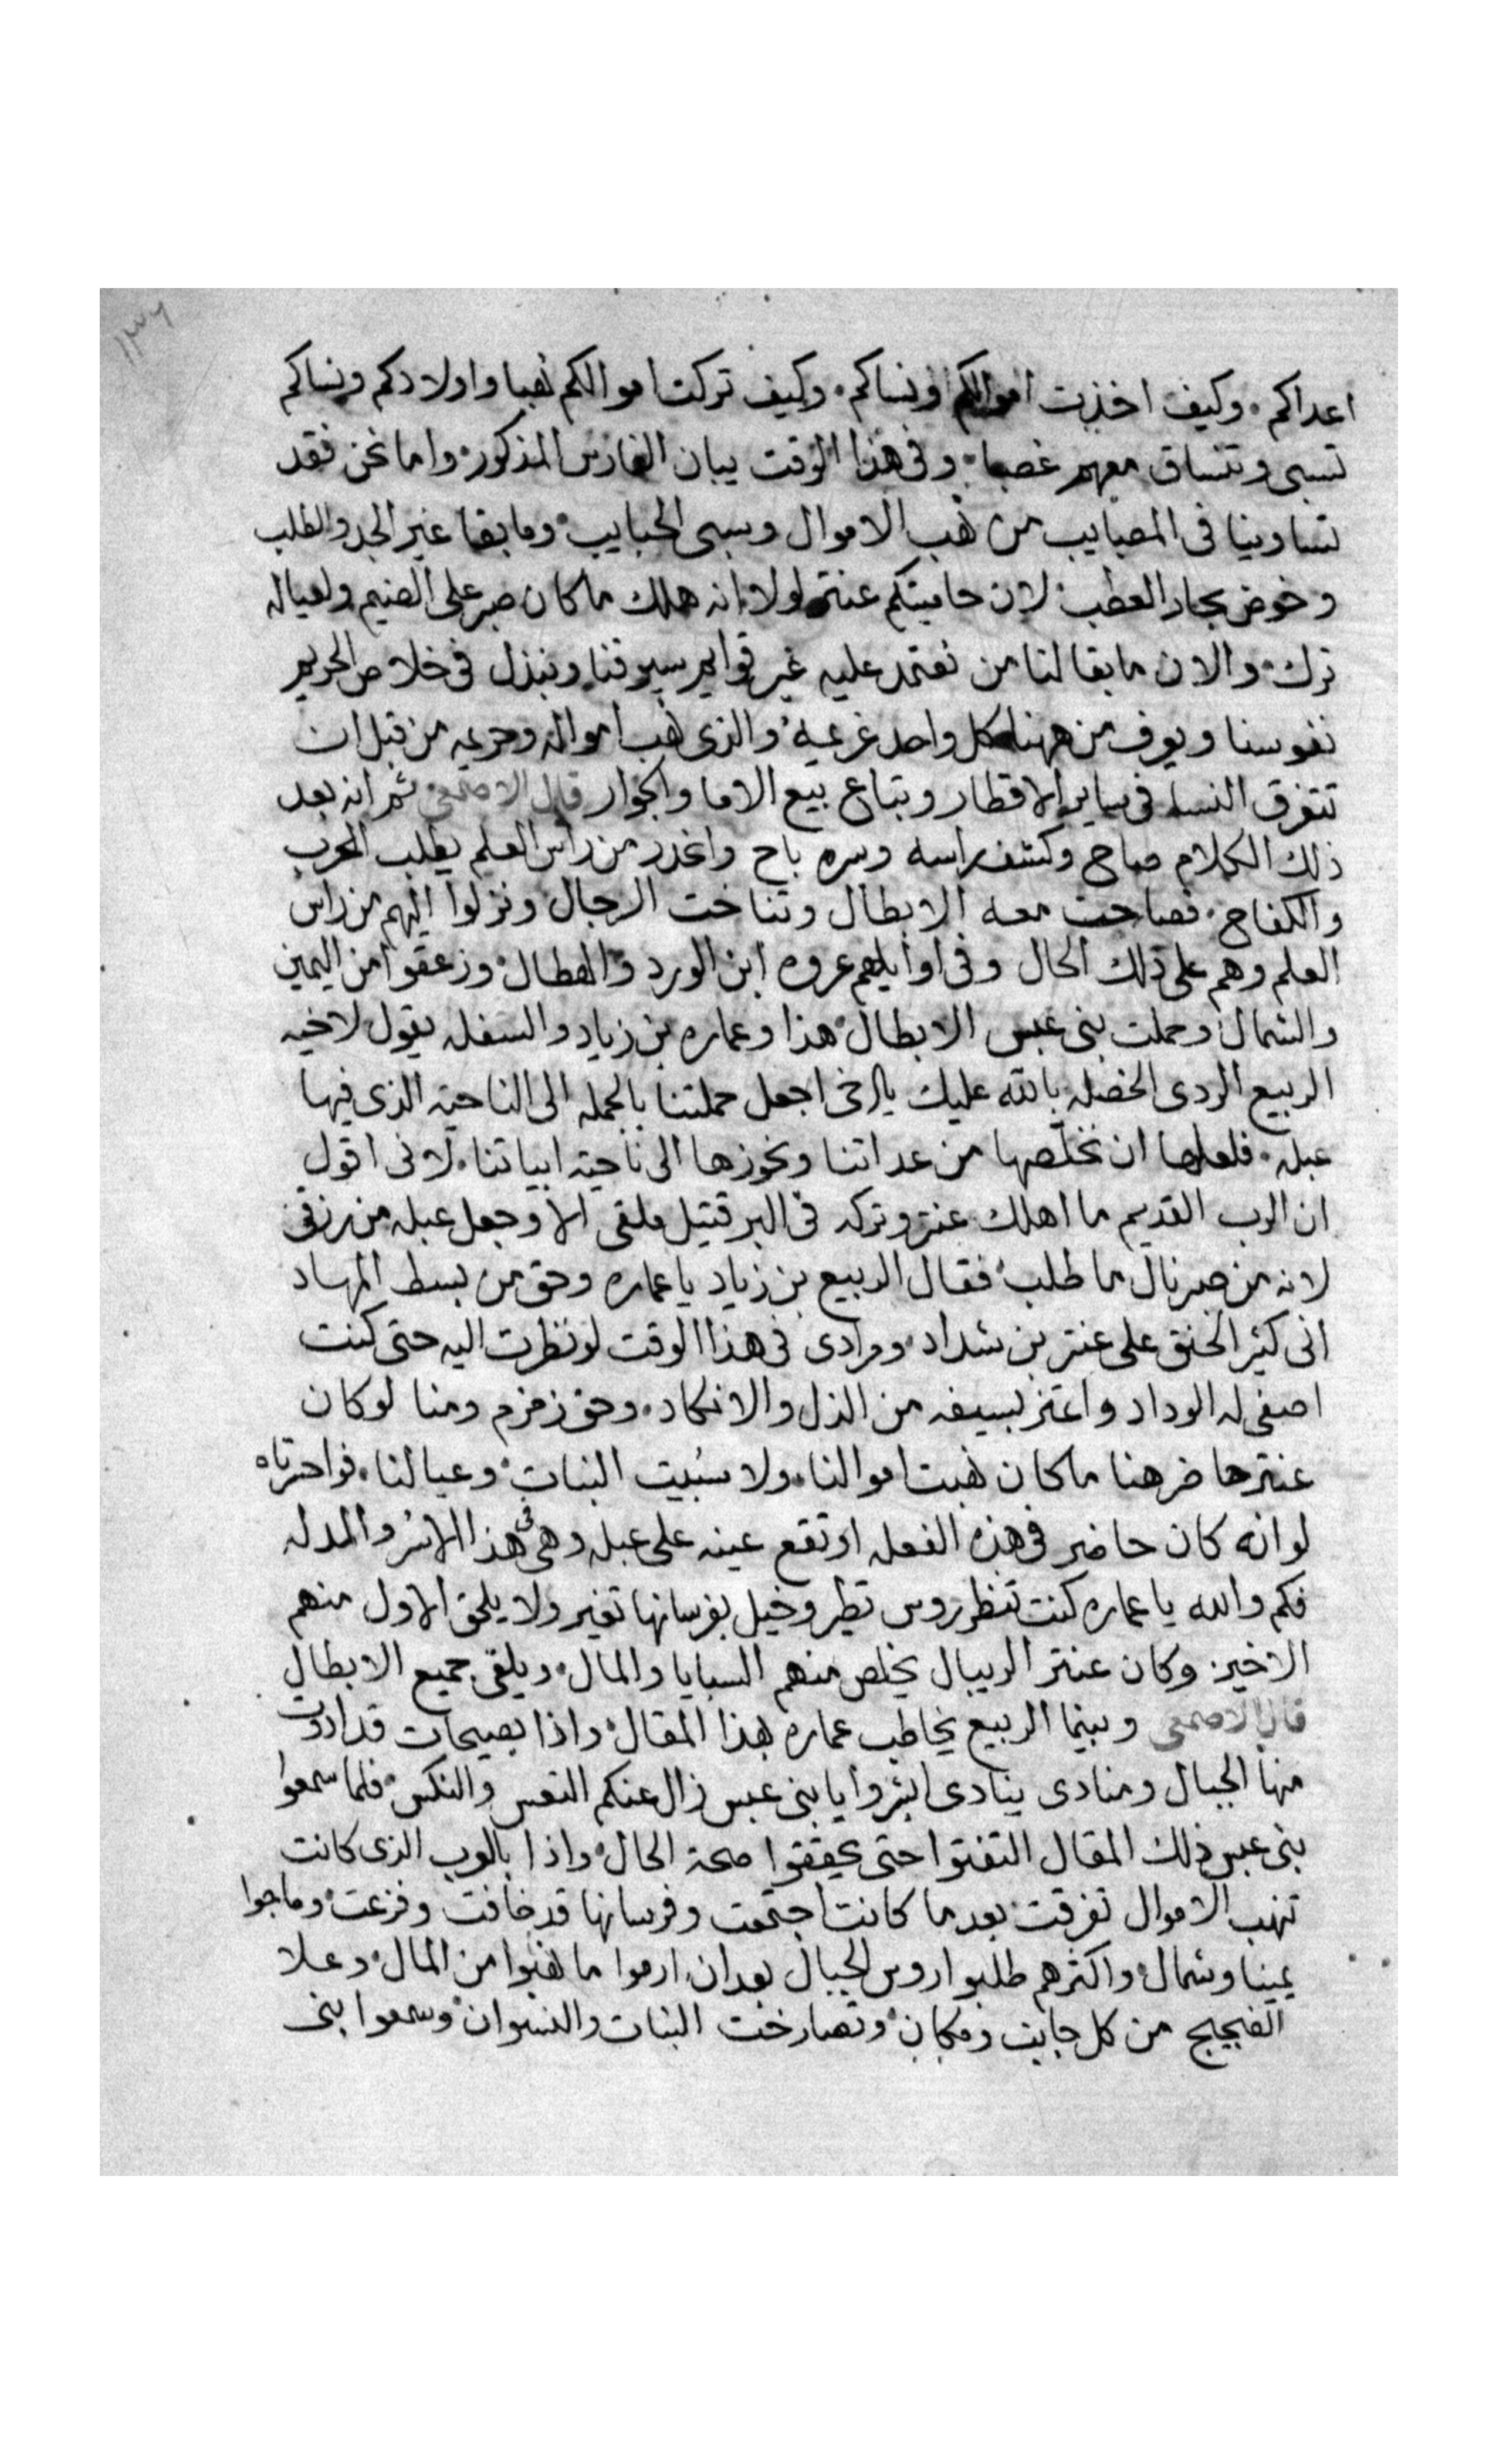 ١٣٦
اعداكم . وكيف اخذت اموالكم ونساكم . وكيف تركت اموالكم نهبا واولادكم ونساكم
تسبى وتنساق معهم غصبا . وفى هذا الوقت يبان الفارس المذكور . واما نحن فقد
تساوينا فى المصايب من نهب الاموال وسبى الحبايب . وما بقا غير الجد والطلب
وخوض بحار العطب . لان حاميتكم عنتر لولا انه هلك ما كان صبر على الضيم ولعياله
ترك . والان ما بقا لنا من نعتمد عليه غير قوايم سيوفنا ونبذل فى خلاص الحريم
نفوسنا ويعرف من ههنا كل واحد غريمه . والذى نهب امواله وحريمه من قبل ان
تتفرق النسا فى ساير الاقطار وتباع بيع الاما والجوار قال الاصمعى ثم انه بعد
ذلك الكلام صاح وكشف راسه وسره باح وانحدر من راس العلم يطلب الحرب
والكفاح . فصاحت معه الابطال وتناخت الرجال ونزلوا اليهم من راس
العلم وهم على ذلك الحال وفى اوايلهم عروه ابن الورد والهطال . وزعقوا من اليمين
والشمال وحملت بنى عبس الابطال . هذا وعماره بن زياد والسفله يقول لاخيه
الربيع الردى الخصله بالله عليك يا اخى اجعل حملتنا بالجمله الى الناحيه الذى فيها
عبله . فلعلها ان نخلصها من عداتنا ونحوزها الى ناحية ابياتنا . لانى اقول
ان الرب القديم ما اهلك عنتر وتركه فى البر قتيل ملقى الا وجعل عبله من رزقى
لانه من صبر نال ما طلب . فقال الربيع بن زياد يا عماره وحق من بسط المهاد
انى كثير الحنق على عنتر بن شداد . ومرادى فى هذا الوقت لو نظرت اليه حتى كنت
اصفى له الوداد واعتز بسيفه من الذل والانكاد . وحق زمزم ومنا لو كان
عنتر حاضر هنا ما كان نهبت اموالنا . ولا سُبيت البنات وعيالنا . فواحسرتاه
لو انه كان حاضر فى هذه الفعله او تقع عينه على عبله وهى فى هذا الاسر والمدله
فكم والله يا عماره كنت تنظر روس تطير وخيل بفرسانها تغير ولا يلحق الاول منهم
الاخير . وكان عنتر الريبال يخلص منهم السبايا والمال . ويلقى جميع الابطال
قال الاصمعى وبينما الربيع يخاطب عماره بهذا المقال . واذا بصيحات قد ادوت
منها الجبال ومنادى ينادى ابشروا يا بنى عبس زال عنكم التعس والنكس . فلما سمعوا
بنى عبس ذلك المقال التفتوا حتى يحققوا صحة الحال . واذا بالعرب الذى كانت
تنهب الاموال تفرقت بعد ما كانت اجتمعت وفرسانها قد خافت وفزعت . وماجوا
يمينا وشمال . واكثرهم طلبوا روس الجبال بعد ان ارموا ما نهبوا من المال . وعلا
الضجيج من كل جانب ومكان . وتصارخت البنات والنسوان . وسمعوا بنى